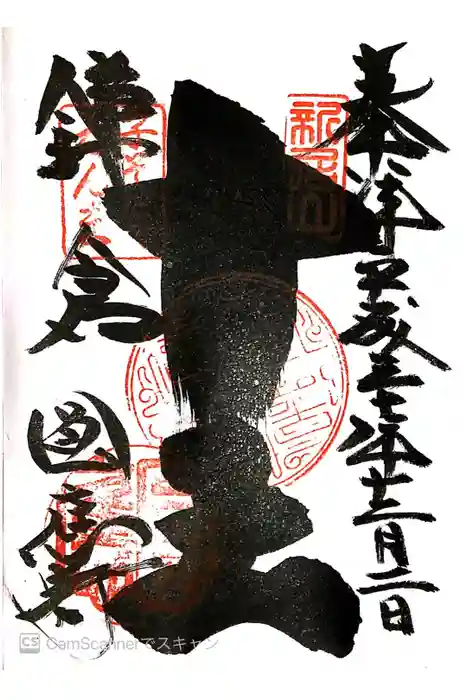 奉拝 平成二十七年十二月二日
新居山
十王
鎌倉 圓應寺
CS CamScannerでスキャン